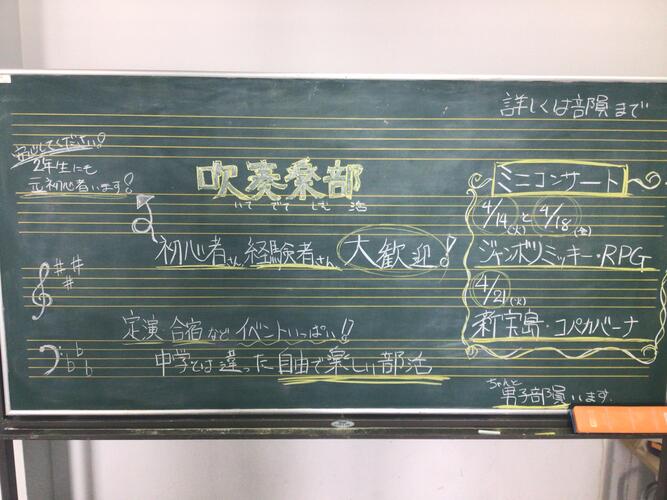 詳しくは部員まで
安心してください!
2年生にも
元初心者います!
吹奏楽部
ミニコンサート
4/14(火)と4/18(金)
ジャンボリミッキー・RPG
4/21(火)
新宝島・コパカバーナ
初心者さん 経験者さん 大歓迎!
定演・合宿など イベントいっぱい!!
中学とは違った自由で楽しい部活
ちゃんと
男子部員います.